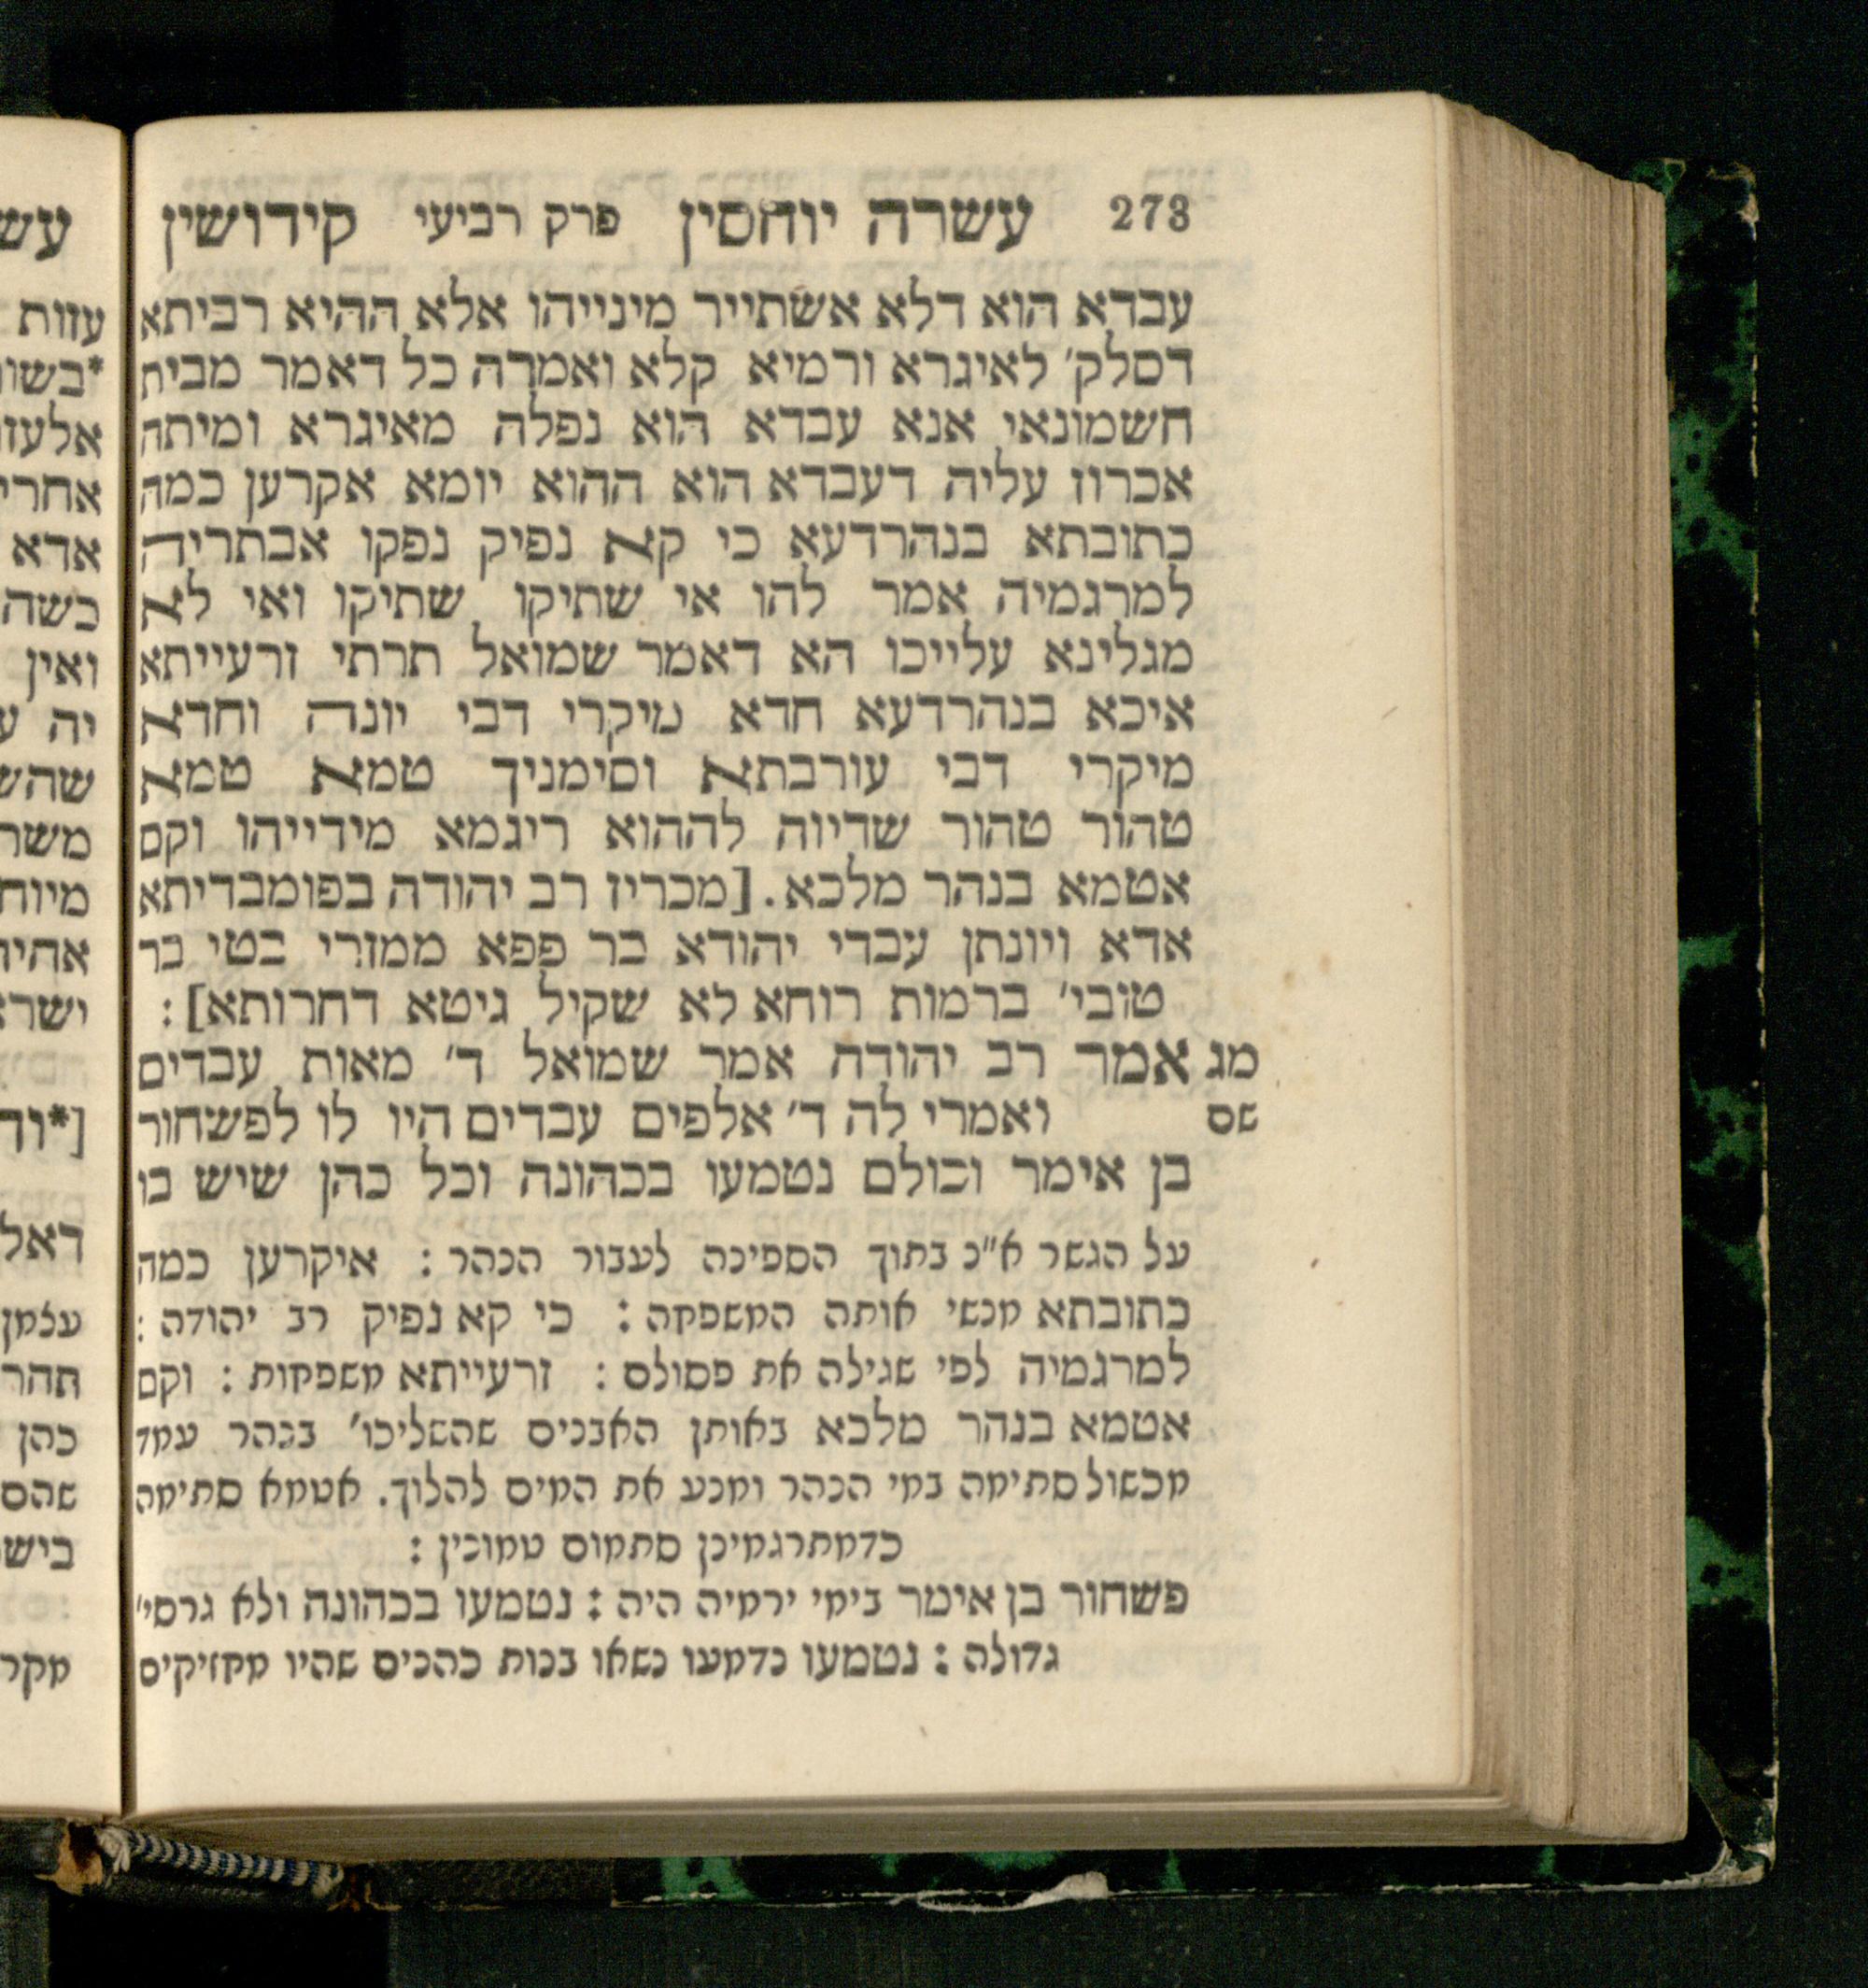 273 עשרה יוחסין פרק רביעי קידושין
עבדא הוא דלא אשתייר מינייהו אלא ההיא רביתא
דסלק׳ לאיגרא ורמיא קלא ואמרה כל דאמר מבית
חשמונאי אנא עבדא הוא נפלה מאיגרא ומיתה
אכרוז עליה דעבדא הוא ההוא יומא אקרען כמה
כתובתא בנהרדעא כי קא נפיק נפקו אבתריה
למרגמיה אמר להו אי שתיקו שתיקו ואי לא
מגלינא עלייכו הא דאמר שמואל תרתי זרעייתא
איכא בנהרדעא חדא מיקרי דבי יונה וחדא
מיקרי דבי עורבתא וסימניך טמא טמא
טהור טהור שדיוה לההוא ריגמא מידייהו וקם
אטמא בנהר מלכא. [מכריז רב יהודה בפומבדיתא
אדא ויונתן עבדי יהודא בר פפא ממזרי בטי בר
טובי׳ ברמות רוחא לא שקיל גיטא דחרותא]:
מג אמר רב יהודה אמר שמואל ד׳ מאות עבדים
שם ואמרי לה ד׳ אלפים עבדים היו לו לפשחור
בן אימר וכולם נטמעו בכהונה וכל כהן שיש בו
על הגשר א״נ בתוך הספינה לעבור הנהר: איקרען כמה
כתובתא מנשי אותה המשפחה: כי קא נפיק רב יהודה:
למרגמיה לפי שגילה את פסולם: זרעייתא משפחות: וקם
אטמא בנהר מלכא באותן האבנים שהשליכו׳ בנהר עמד
מכשול סתימה במי הנהר ומנע את המים להלוך. אטמא סתימה
כדמתרגמינן סתמום טמונין:
פשחור בן אימר בימי ירמיה היה: נטמעו בכהונה ולא גרסי׳
גדולה: נטמעו כדמעו נשאו בנות כהנים שהיו מחזיקים
עזות
אלעזר
אדא
כשה
ואין
יה
משר
כהן
שהם
תהר